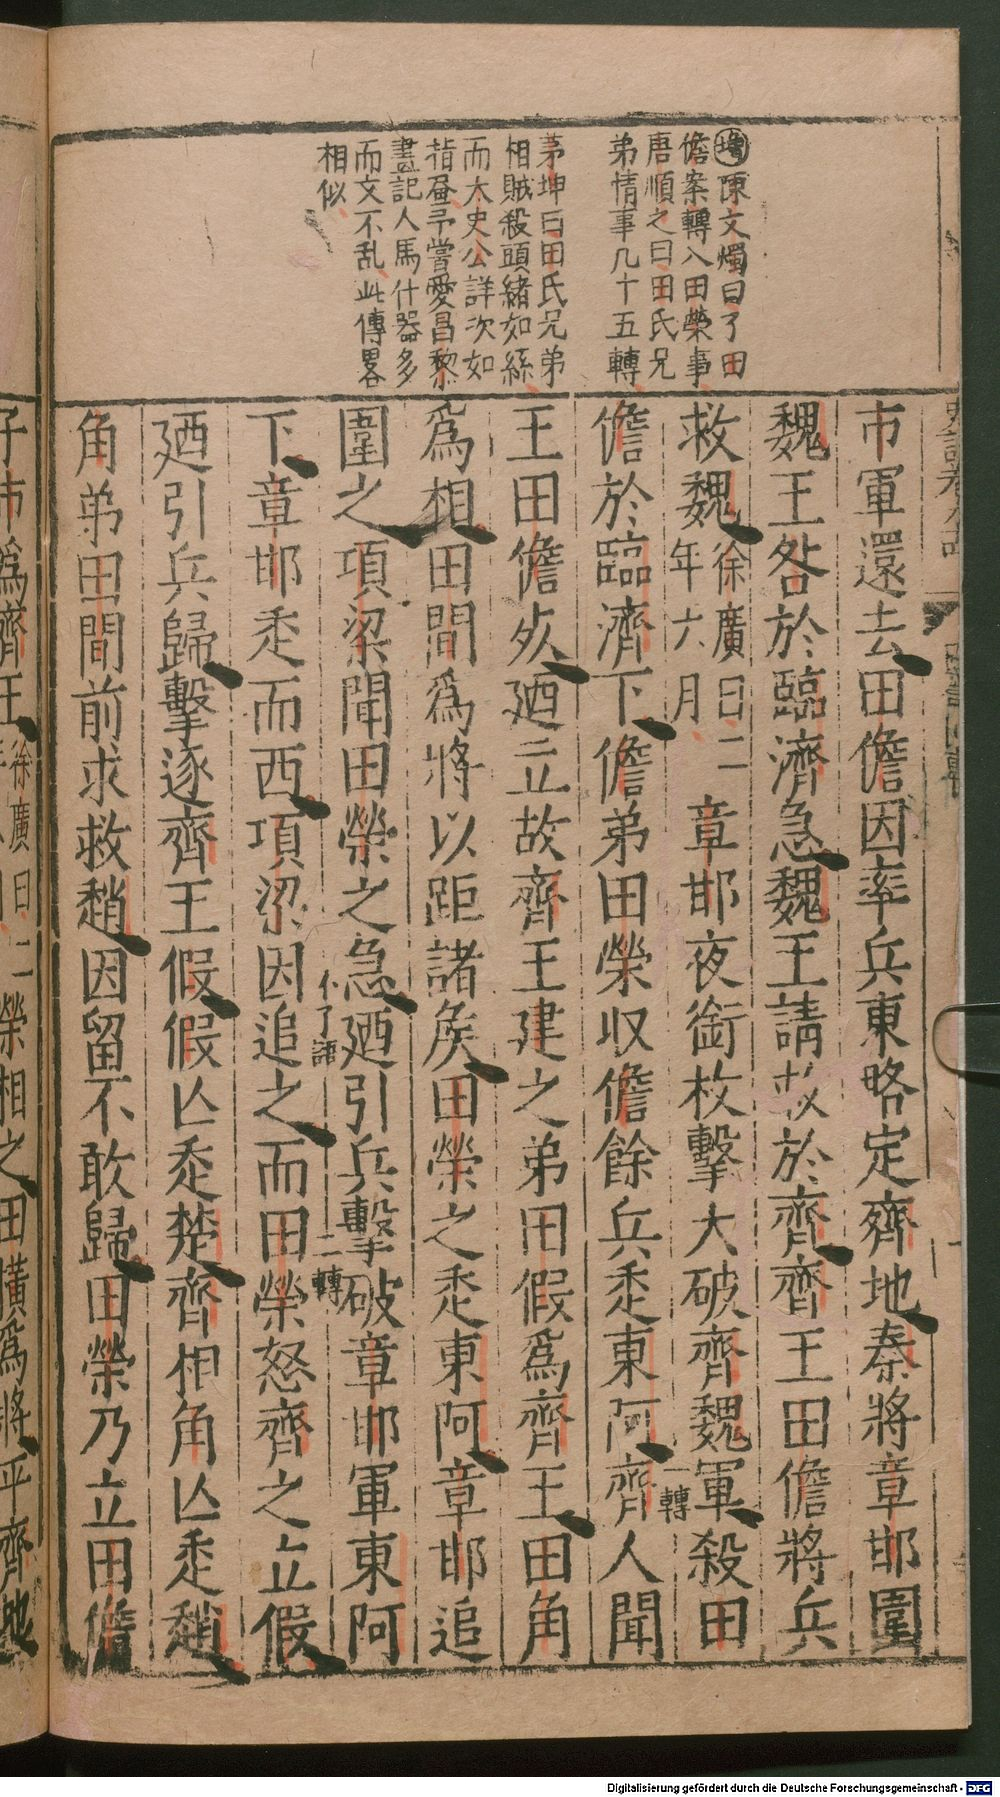 陳文燭曰了田
儋案轉入田榮事
唐順之曰田氏兄
弟情事凡十五轉
茅坤曰田氏兄弟
相賊殺頭緒如絲
而太史公詳次如
指畫予嘗愛昌黎
畫記人馬什器多
而文不乱此傳畧
相似
市軍還去田儋因率兵東略定齊地秦將章邯圍
魏王咎於臨濟急魏王請救於齊齊王田儋將兵
救魏徐廣曰二年六月章邯夜銜枚擊大破齊魏軍殺田
儋於臨濟下儋弟田榮収儋餘兵走東阿齊人聞
一轉
王田儋死廼立故齊王建之弟田假爲齊王田角
爲相田間爲將以距諸侯田榮之走東阿章邯追
圍之項梁聞田榮之急廼引兵擊破章邯軍東阿
不了語
二轉
下章邯走而西項梁因追之而田榮怒齊之立假
廼引兵歸擊逐齊王假假亾走楚齊相角亾走趙
角弟田間前求救趙因留不敢歸田榮乃立田儋
子市爲齊王徐廣曰二
榮相之田橫爲將平齊地
Digitalisierung gefördert durch die Deutsche Forschungsgemeinschaft - DFG